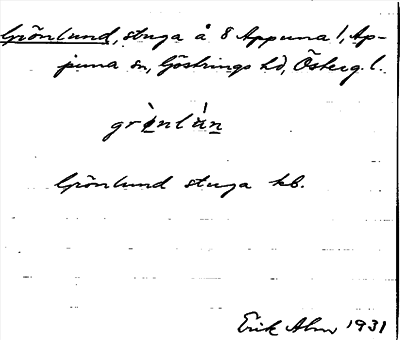 Grönlund, stuga å 8 Appuna 1, Ap-
puna sn, Göstrings hd, Österg. l.
grö̀nlún
Grönlund stuga kb.
Erik Alm 1931